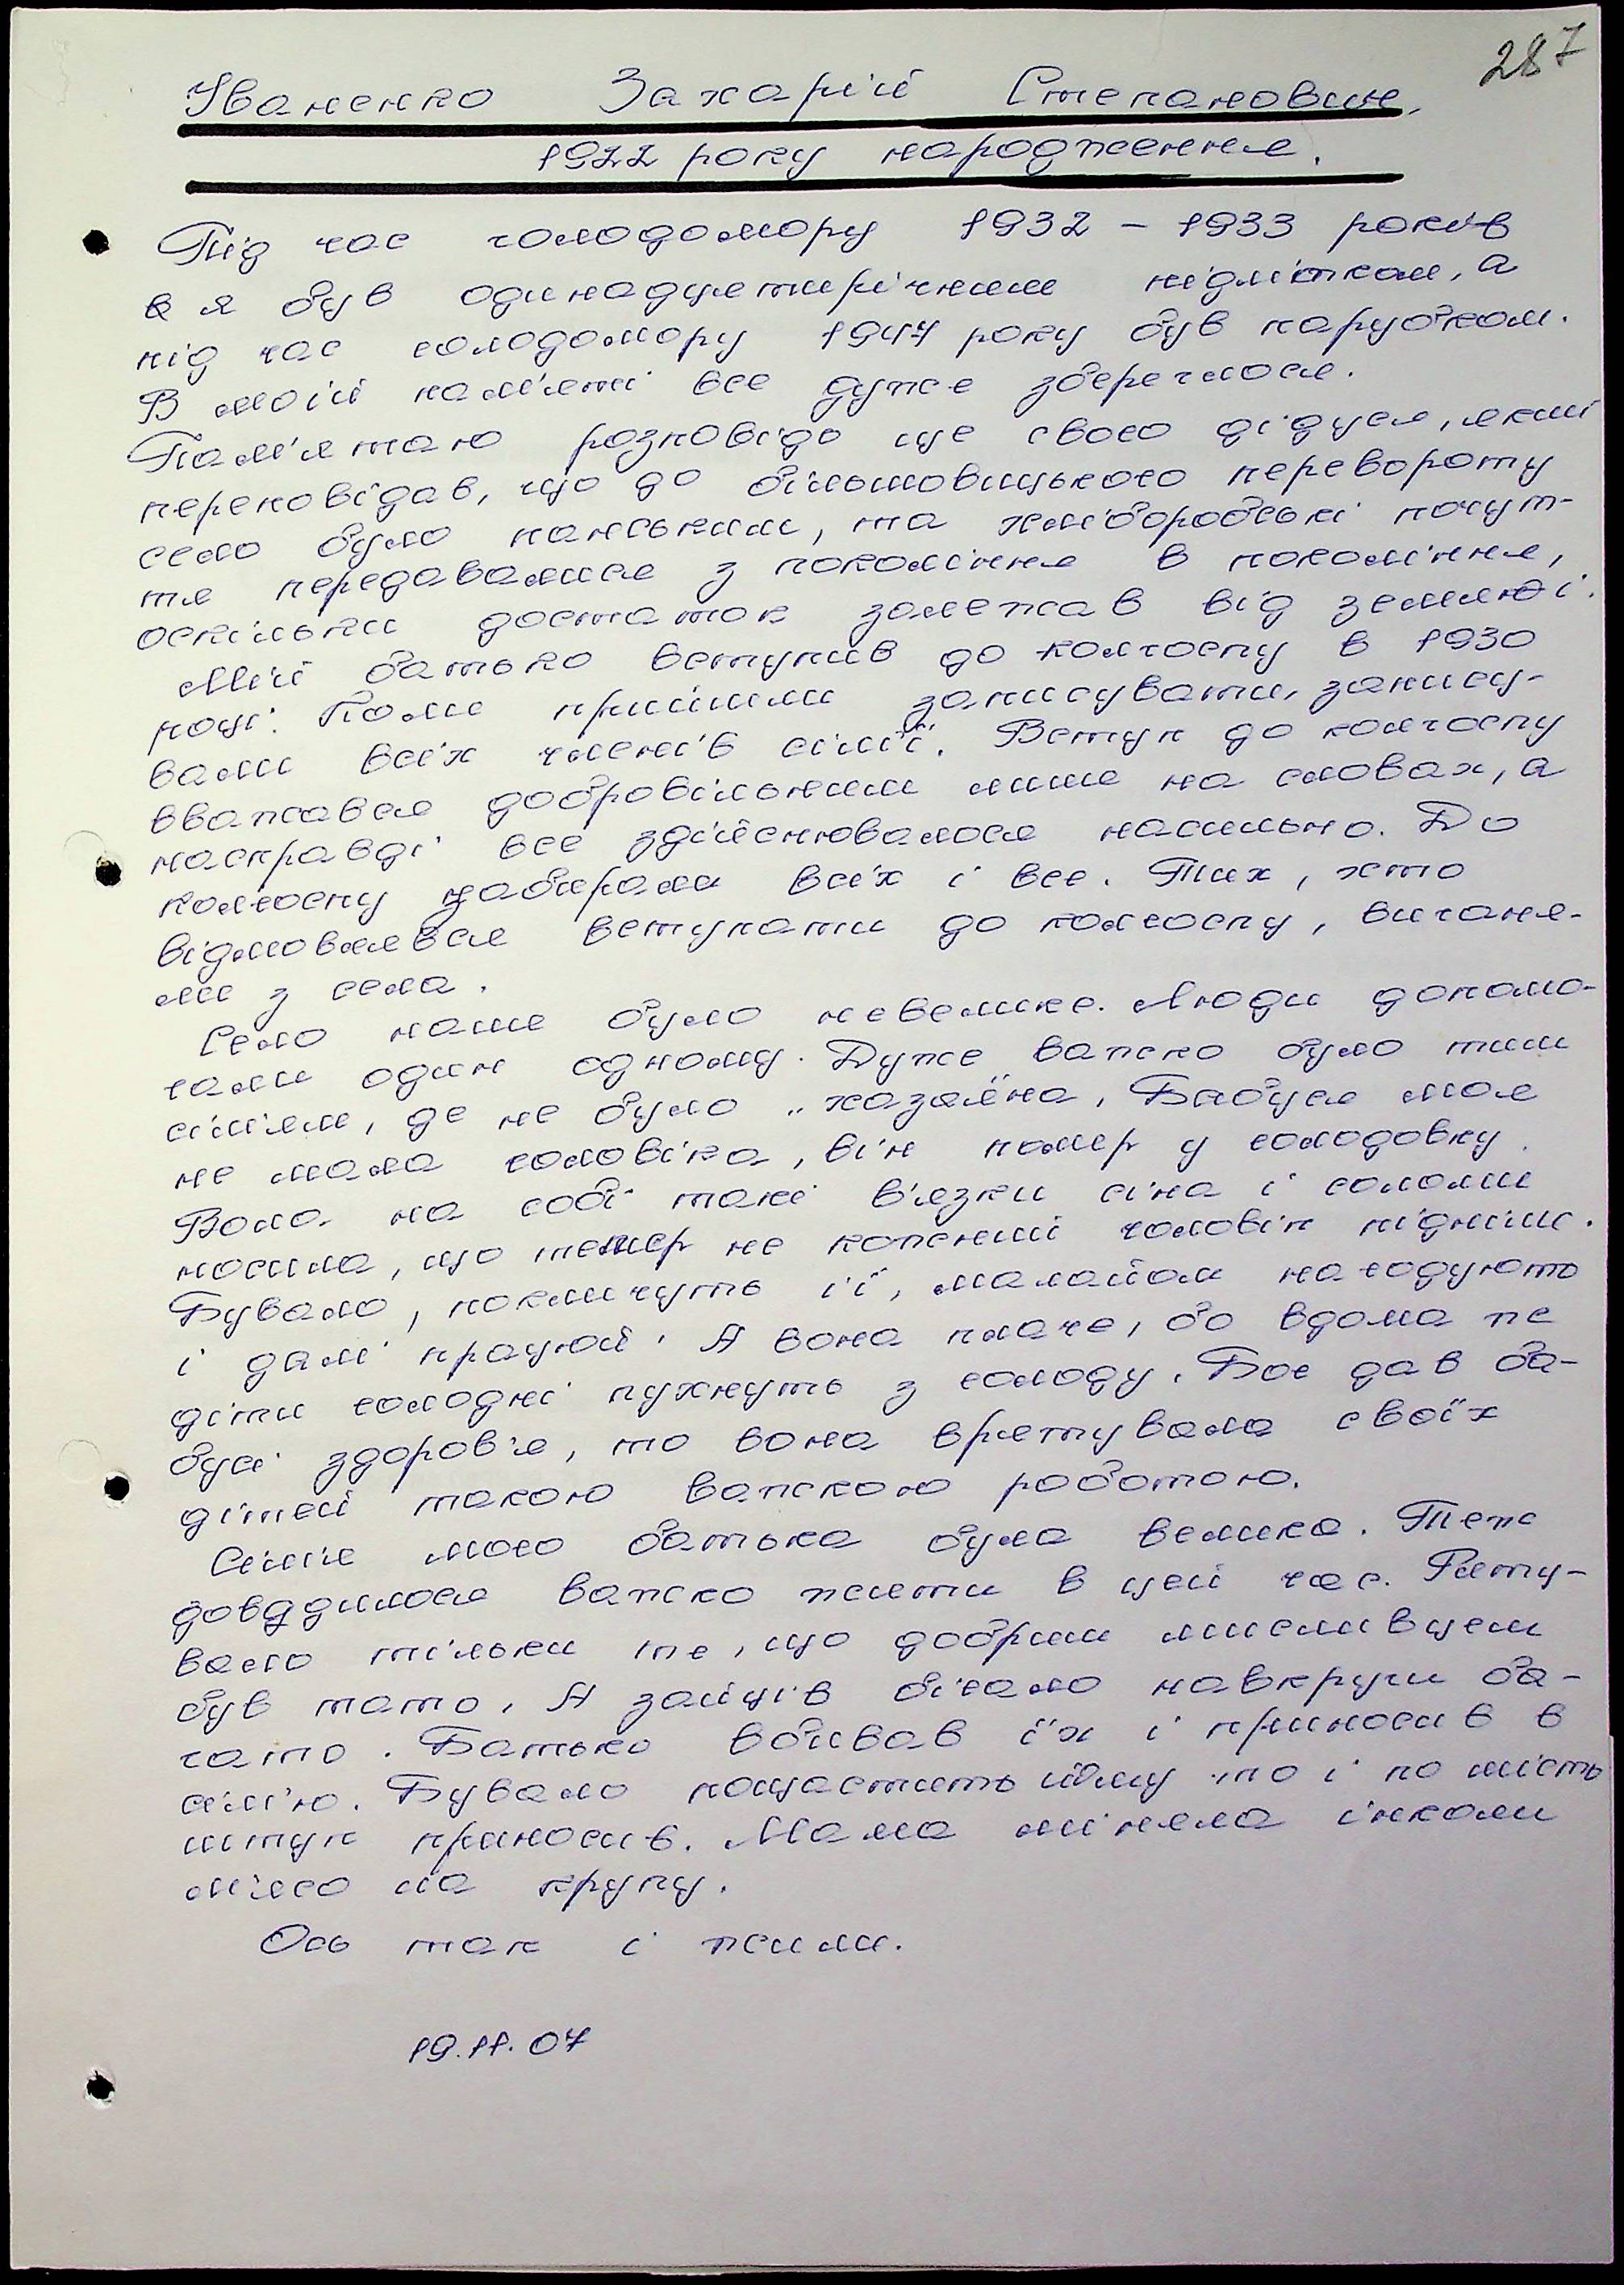 287
Іваненко Захарій Степанович,
1922 року народження.
Під час голодомору 1932 - 1933 років
в я був одинадцятирічним підлітком, а
під час голодомору 1947 року був парубком.
В моїй пам'яті все дуже збереглося.
Пам'ятаю розповідь ще свого дідуся, який
переповідав, що до більшовицького перевороту
село було панським, та хліборобські почут-
тя передавалися з покоління в покоління,
оскільки достаток залежав від землі.
Мій батько вступив до колгоспу в 1930
році. Коли прийшли записувати, запису-
вали всіх членів сім'ї. Вступ до колгоспу
вважався добровільним лише на словах, а
насправді все здійснювалося насильно. До
колгоспу забирали всіх і все. Тих, хто
відмовлявся вступати до колгоспу, виганя-
ли з села.
Село наше було невелике. Люди допома-
гали один одному. Дуже важко було тим
сім'ям, де не було „хазяїна, Бабуся моя
не мала чоловіка, він помер у голодовку.
Вона на собі такі в'язки сіна і соломи
носила, що тепер не кожений чоловік підніме.
Бувало, покличуть її, малайом нагодують
і далі працюй. А вона плаче, бо вдома пе
діти голодні пухнуть з голоду. Бог дав ба-
бусі здоров'я, то вона врятувала своїх
дітей такою важкою роботою.
Сім'я мого батька була велика. Теж
довдилося важко жити в цей час. Ряту-
вало тільки те, що добрим мисливцем
був тато. А зайців бігало навкруги ба-
гато. Батько вбивав їх і приносив в
сім'ю. Бувало пощастить йому то і по шість
штук приносив. Мама міняла інколи
м'ясо на крупу.
Ось так і жили.
19.11.07